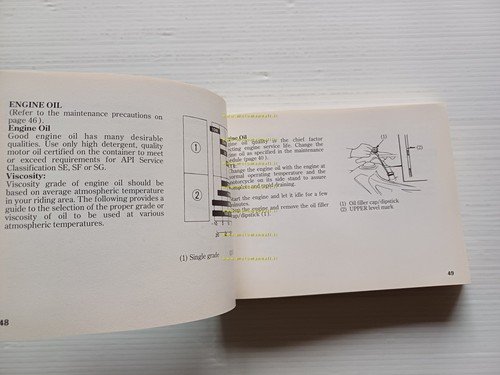 ENGINE OIL
(Refer to the maintenance precautions on
page 46).
Engine Oil
Good engine oil has many desirable
qualities. Use only high detergent, quality
motor oil certified on the container to meet
or exceed requirements for API Service
Classification SE, SF or SG.
Viscosity:
Viscosity grade of engine oil should be
based on average atmospheric temperature
in your riding area. The following provides a
guide to the selection of the proper grade or
viscosity of oil to be used at various
atmospheric temperatures.
48
1
2
(1) Single grade
Oil
oil quality is the chief factor
engine service life. Change the
oil as specified in the maintenance
(page 40).
Change the engine oil with the engine at
normal operating temperature and the
on its side stand to assure
complete and rapid draining.
Start the engine and let it idle for a few
minutes.
Stop the engine and remove the oil filler
cap/dipstick (1).
(1)
(2)
(1) Oil filler cap/dipstick
(2) UPPER level mark
49